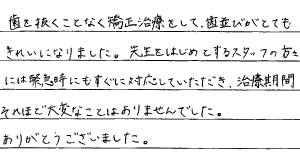 歯を抜くことなく矯正治療をして、歯並びがとても
きれいになりました。先生をはじめとするスタッフの方々
には緊急時にもすぐに対応していただき、治療期間
それほど大変なことはありませんでした。
ありがとうございました。